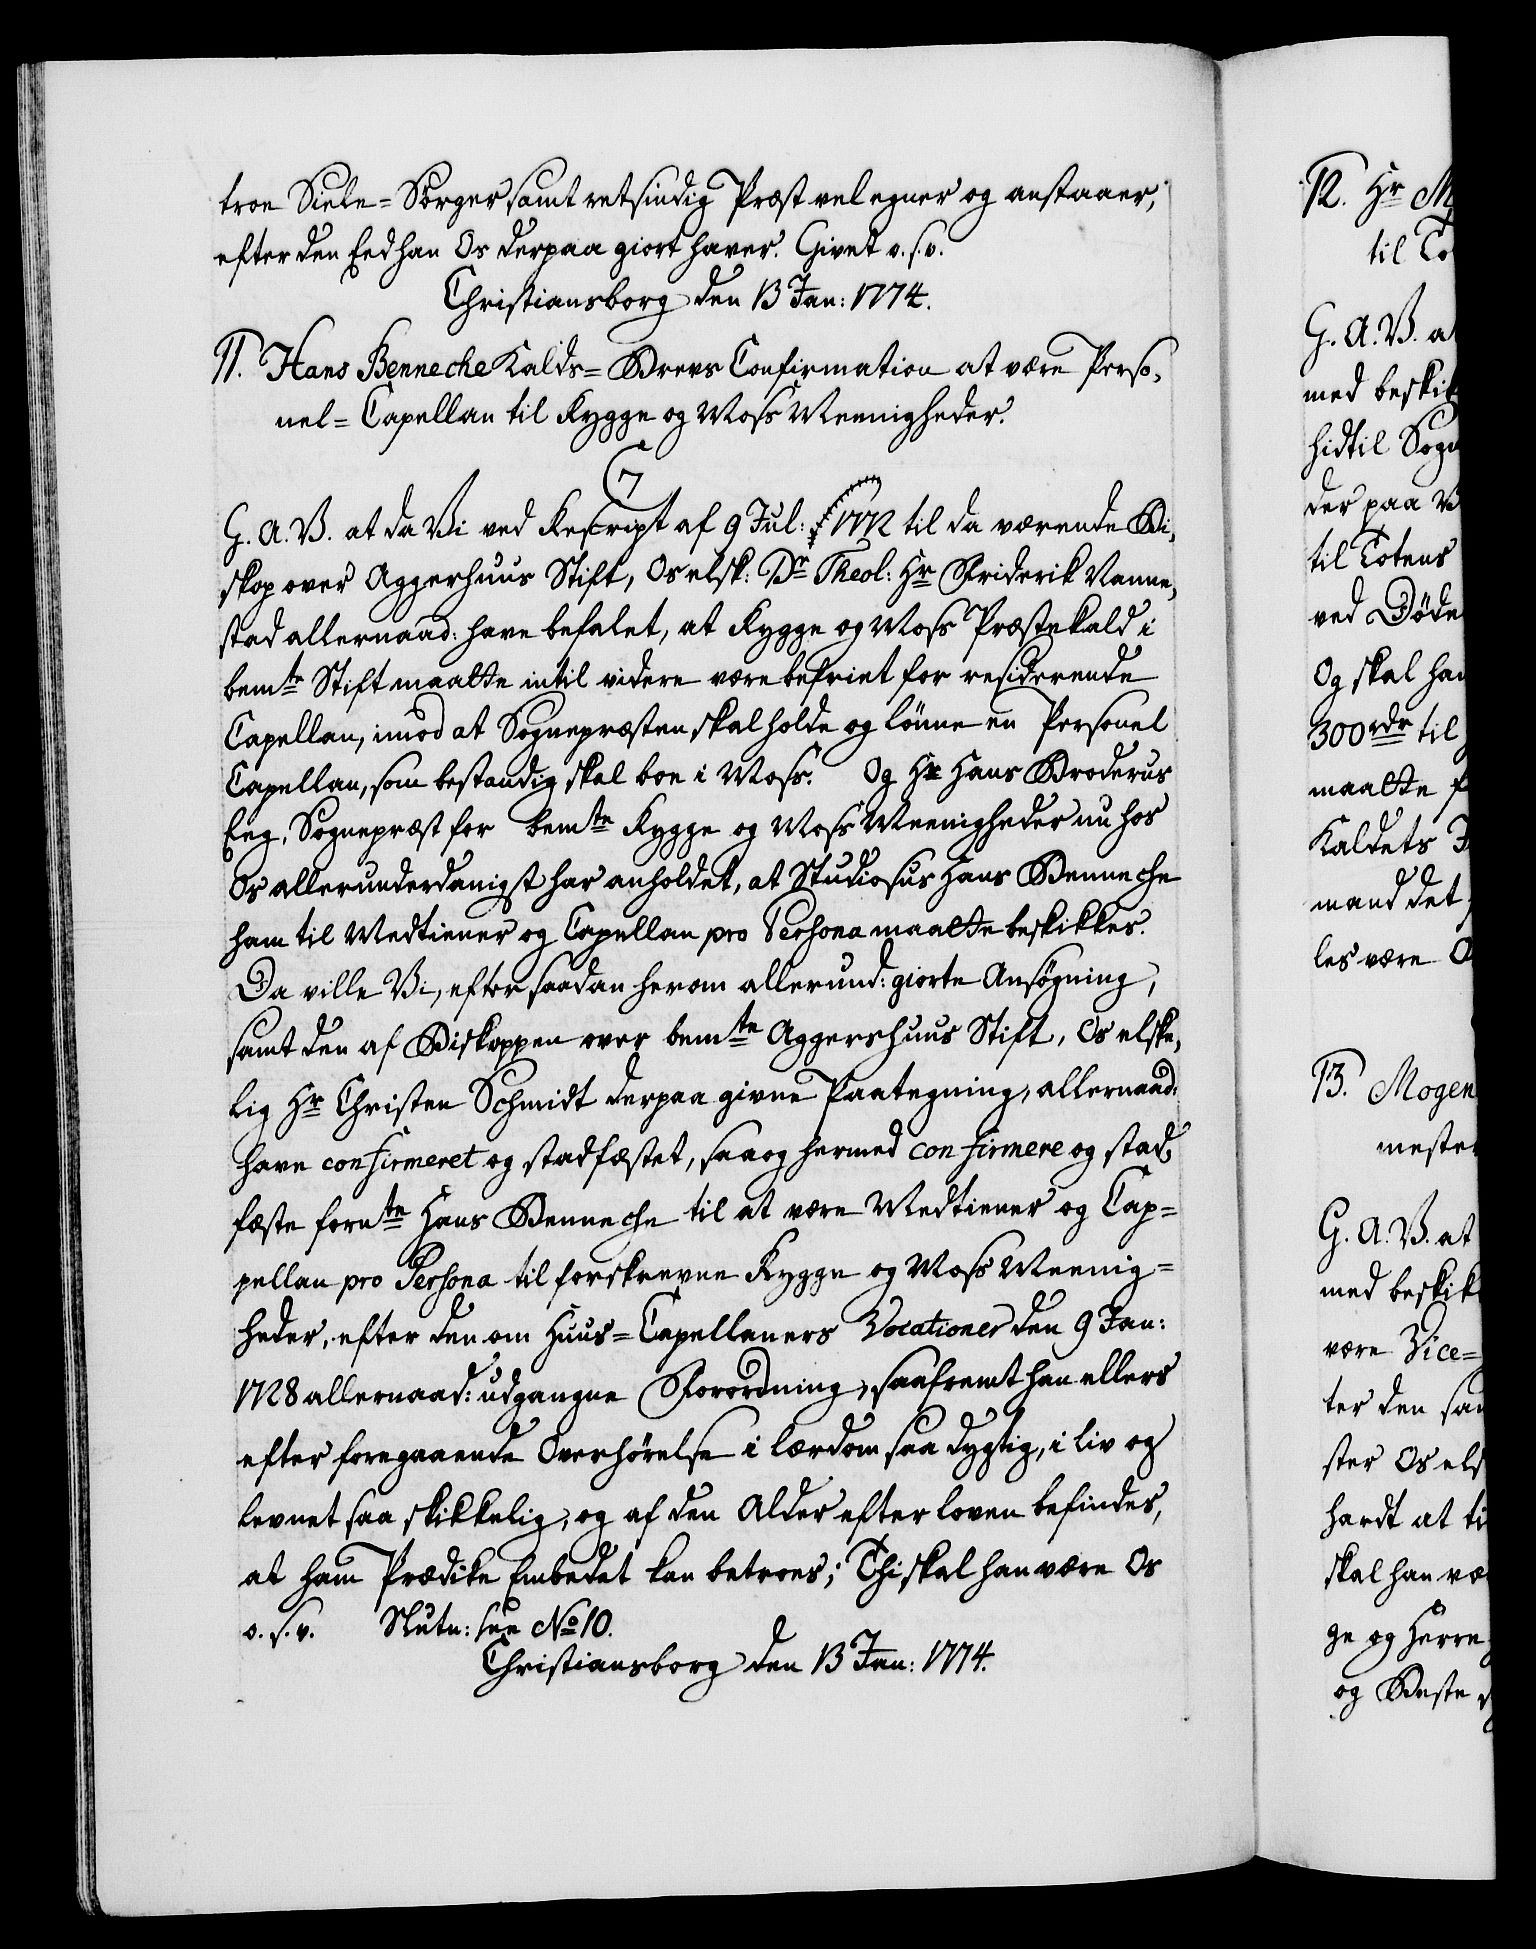 troe Siele-Sørger samt retsindig Præst vel egner og anstaaer,
efter den Eed han Os derpaa giort haver. Givet o.s.v.
Christiansborg den 13 Jan: 1774.
11. Hans Benneche Kalds-Brevs Confirmation at være Perso-
nel-Capellan til Rygge og Moss Meenigheder.
G. A. V. at da Vi ved Rescript af 9 Jul: 1772 til da værende Bi-
skop over Aggerhuus Stift, Os elsk: Dr Theol: Hr Friderik Nanne-
stad allernaad: have befalet, at Rygge og Moss Præstekald i
bemte Stift maatte intil videre være befriet for residerende
Capellan, imod at Sognepræsten skal holde og lønne en Personel
Capellan, som bestandig skal boe i Moss. Og Hr Hans Broderus
Eeg, Sognepræst for bemte Rygge og Moss Meenigheder nu hos
Os allerunderdanigst har anholdet, at Studiosus Hans Benneche
ham til Medtiener og Capellan pro Persona maatte beskikkes.
Da ville Vi, efter saadan herom allerund: giorte Ansøgning,
samt den af Biskoppen over bemte Aggershuus Stift, Os elske-
lig Hr Christen Schmidt derpaa givne Paategning, allernaad:
have confirmeret og stadfæstet, saa og hermed confirmere og stad-
fæste fornte Hans Benneche til at være Medtiener og Cap-
pellan pro Persona til forskrevne Rygge og Moss Meenig-
heder, efter den om Huus-Capellaners Vocationer den 9 Jan:
1728 allernaad: udgangne Forordning, saafremt han ellers
efter foregaaende Overhørelse i lærdom saa dygtig, i liv og
levnet saa skikkelig, og af den Alder efter loven befindes,
at ham Prædike Embedet kan betroes; Thi skal han være Os
o.s.v. Slutn: see No 10.
Christiansborg den 13 Jan: 1774.
12. Hr M
til To
G. A. V. a
med beskik
hidtil Sogn
der paa V
til Totens
ved Døde
Og skal han
300 rdr til
maatte f
Kaldets J
mand det
les være O
13. Mogen
mester
G. A. V. at
med beskik
være Vice-
ter den sam
ster Os els
hardt at ti
skal han væ
ge og Herre
og Beste